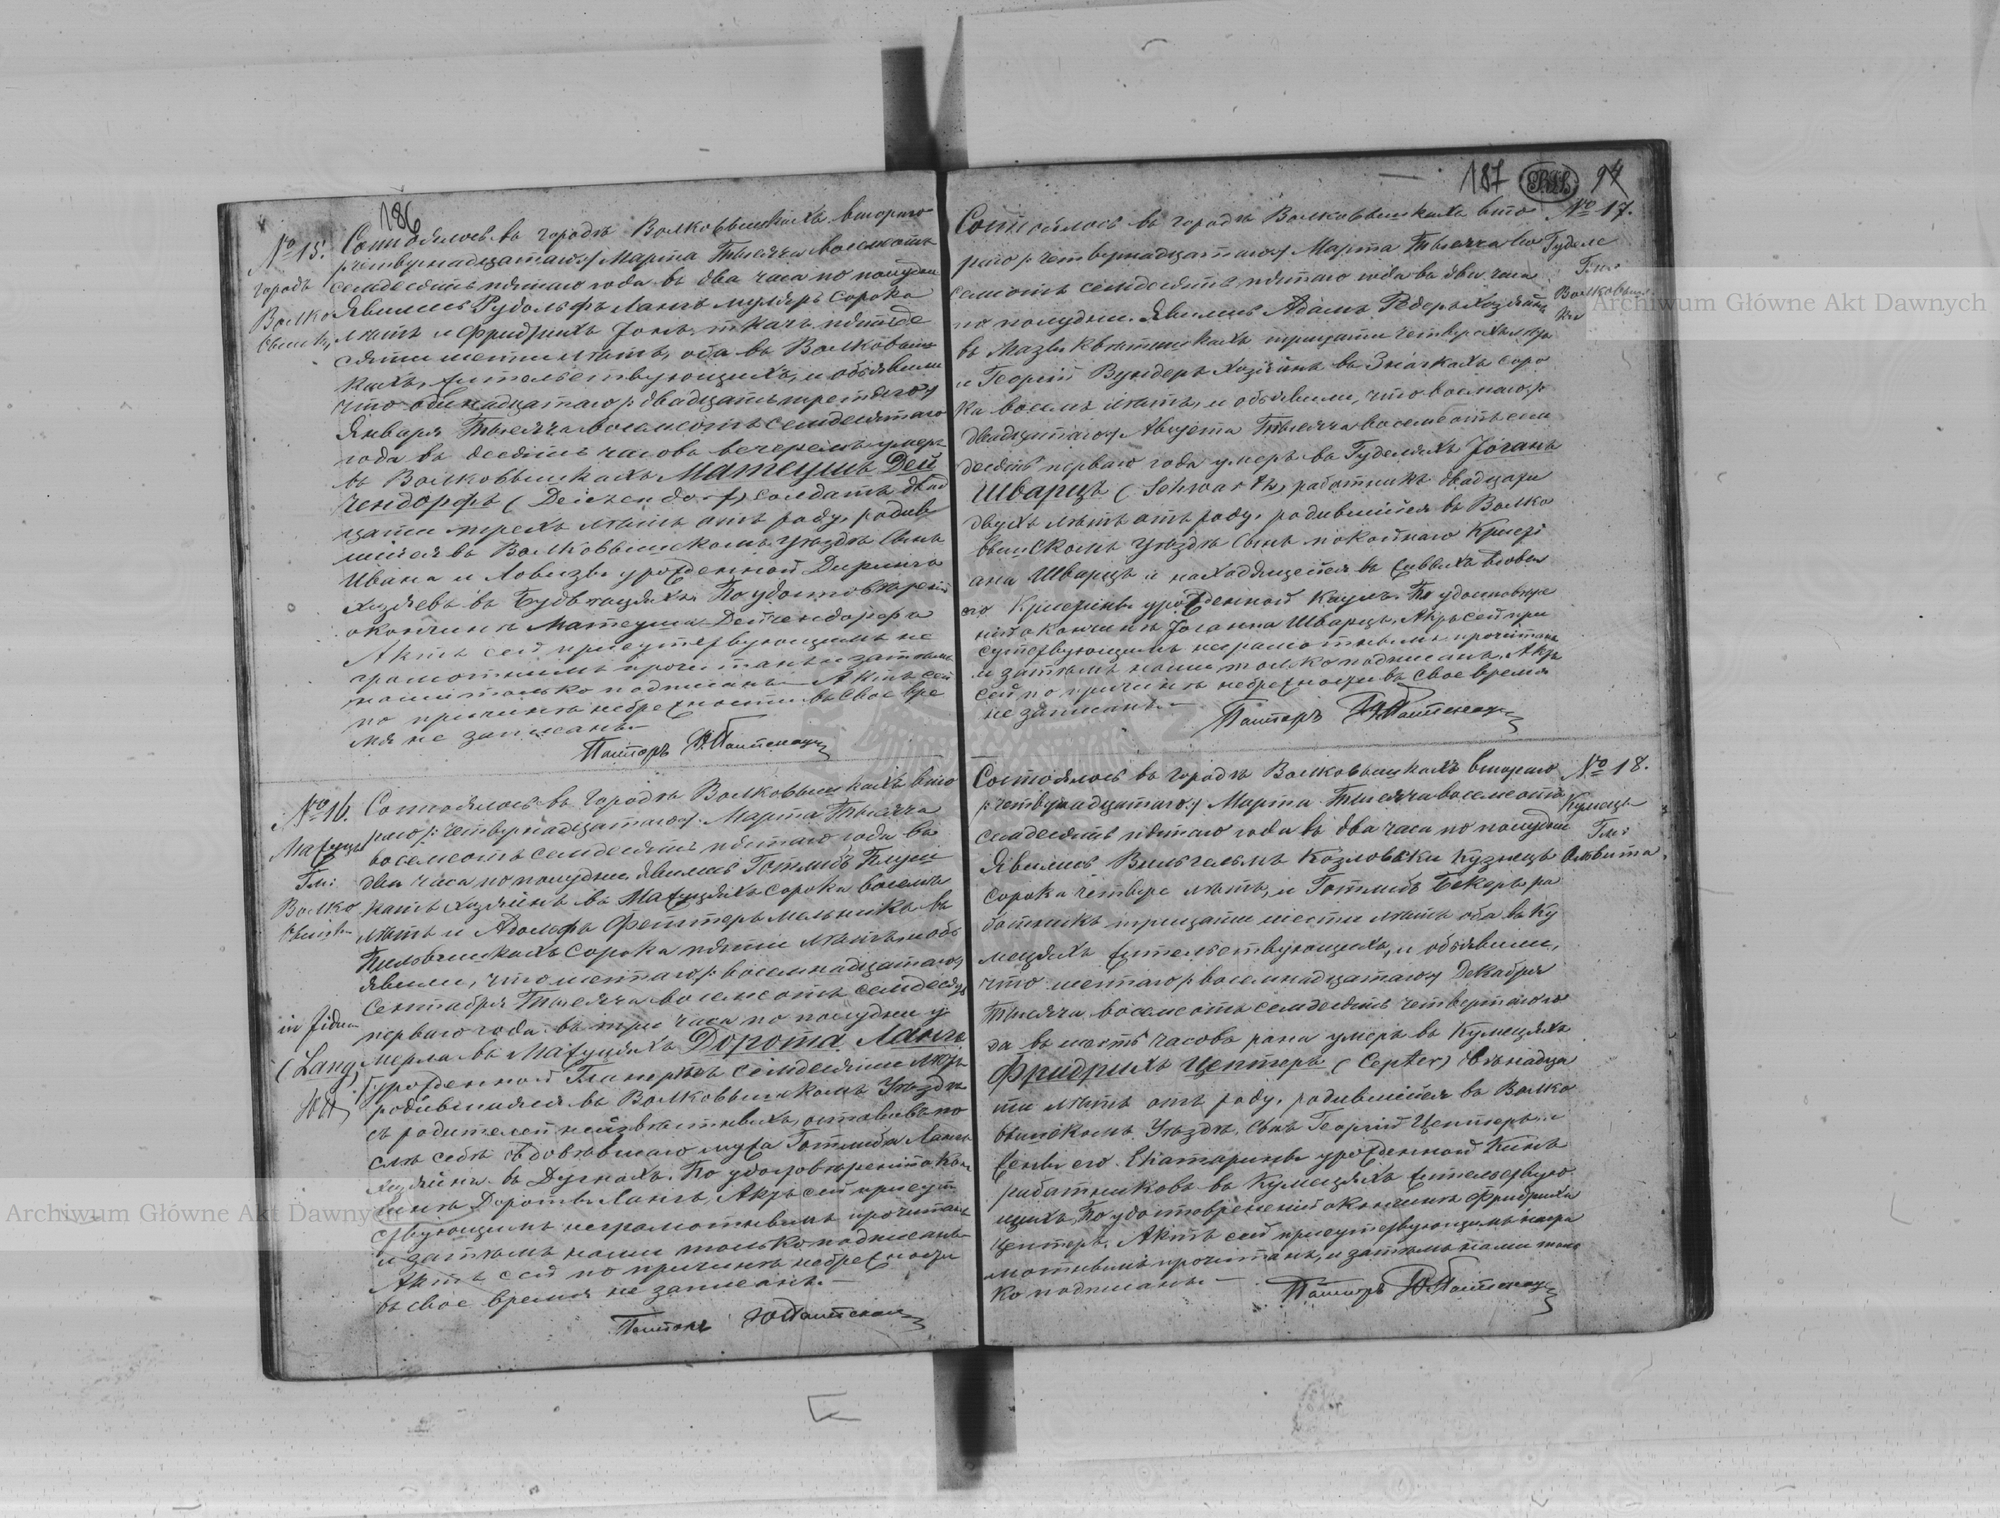 186
№ 15.
городъ
Волко
вышки
Состоялось въ городѣ Волковышкахъ втораго
/: четырнадцатаго :/ Марта Тысяча восемьсотъ
семдесятъ пятаго года въ два часа по полудни
Явились Рудольфъ Лангъ муляръ сорока
лѣтъ и Фридрихъ ткачъ пятиде
сяти шести лѣтъ, оба въ Волковыш
кахъ жительствующихъ, и объявили
что одинадцатаго /: двадцать третяго :/
Января Тысяча восемсотъ семдесятаго
года въ десять часовъ вечеромъ умеръ
въ Волковышкахъ Матеушъ Дей
чендорфъ (Deichendorf) солдатъ двад
цати трехъ лѣтъ отъ роду, родив
шійся въ Волковышскомъ Уѣздѣ Сынъ
Ивана и Ловизы урожденной
хозяевъ въ По удостовѣреніи
о кончинѣ Матеуша Дейчендорфа
Актъ сей присутствующимъ не
грамотнымъ прочитанъ и затѣмъ
нами только подписанъ. Актъ сей
по причинѣ небрежности въ свое вре
мя не записанъ.
Пасторъ
№ 16.
Мажуце
Гм:
Волко
вышки
in fidem
(Lang)
Состоялось въ городѣ Волковышкахъ вто
раго /: четырнадцатаго :/ Марта Тысяча
восемсотъ семдесятъ пятаго года въ
два часа по полудни явились Готлибъ
хозяинъ въ Мажуцяхъ сорока восемъ
лѣтъ и Адольфъ Феттеръ мельникъ въ
сорока пяти лѣтъ, и объ
явили, что шестаго /: восемнадцатаго :/
Сентября Тысяча восемсотъ семдесятъ
перваго года въ три часа по полудни у
мерла въ Мажуцяхъ Дорота Лангъ
урожденной семдесяти лѣтъ
родившаяся въ Волковышскомъ Уѣздѣ
съ родителей неизвѣстныхъ, оставивъ по
слѣ себѣ овдовѣвшаго мужа Готлиба Лангъ
хозяина въ По удостовѣреніи о кон
чинѣ Дороты Лангъ, Актъ сей присут
ствующимъ неграмотнымъ прочитанъ
и затѣмъ нами только подписанъ
Актъ сей по причинѣ небрежности
въ свое время не записанъ.
Пасторъ
187
94
№ 17.
Гуделе
Гм:
Волковыш
ки
Состоялось въ городѣ Волковышкахъ вто
раго /: четырнадцатаго :/ Марта Тысяча во
семсотъ семдесятъ пятаго года въ два часа
по полудни. Явились Адамъ Редеръ хозяинъ
въ тридцати четырехъ лѣтъ
и Георгій Вундеръ хозяинъ въ соро
ка восемъ лѣтъ, и объявили, что восмаго /:
двадцатаго :/ Августа Тысяча восемсотъ сем
десятъ перваго года умеръ въ Гуделяхъ Іоганъ
Шварцъ (Schwartz) работникъ двадцати
двухъ лѣтъ отъ роду, родившійся въ Волко
вышскомъ Уѣздѣ Сынъ покойнаго Кристі
ана Шварцъ и находящейся въ живыхъ вдовы
его Кристины урожденной По удостовѣре
ніи о кончинѣ Іоганна Шварцъ, Актъ сей при
сутствующимъ неграмотнымъ прочитанъ
и затѣмъ нами только подписанъ. Актъ
сей по причинѣ небрежности въ свое время
не записанъ.
Пасторъ
№ 18.
Кумеце
Гм:
Олвита
Состоялось въ городѣ Волковышкахъ втораго
/: четырнадцатаго :/ Марта Тысяча восемсотъ
семдесятъ пятаго года въ два часа по полудни
Явились Вильгельмъ Козловски кузнецъ
сорока четыре лѣтъ, и Готлибъ Бекеръ ра
ботникъ тридцати шести лѣтъ оба въ Ку
мецяхъ жительствующихъ, и объявили,
что шестаго /: восемнадцатаго :/ Декабря
Тысяча восемсотъ семдесятъ четвертаго го
да въ шесть часовъ рана умеръ въ Кумецяхъ
Фридрихъ Цептеръ (Cepter) двѣнадца
ти лѣтъ отъ роду, родившійся въ Волко
вышскомъ Уѣздѣ, Сынъ Георгій Цептеръ и
жены его Екатарины урожденной Кинъ
работниковъ въ Кумецяхъ жительствую
щихъ, По удостовѣреніи о кончинѣ Фридриха
Цептеръ, Актъ сей присутствующимъ негра
мотнымъ прочитанъ, и затѣмъ нами толь
ко подписанъ.
Пасторъ
Archiwum Główne Akt Dawnych
Archiwum Główne Akt Dawnych